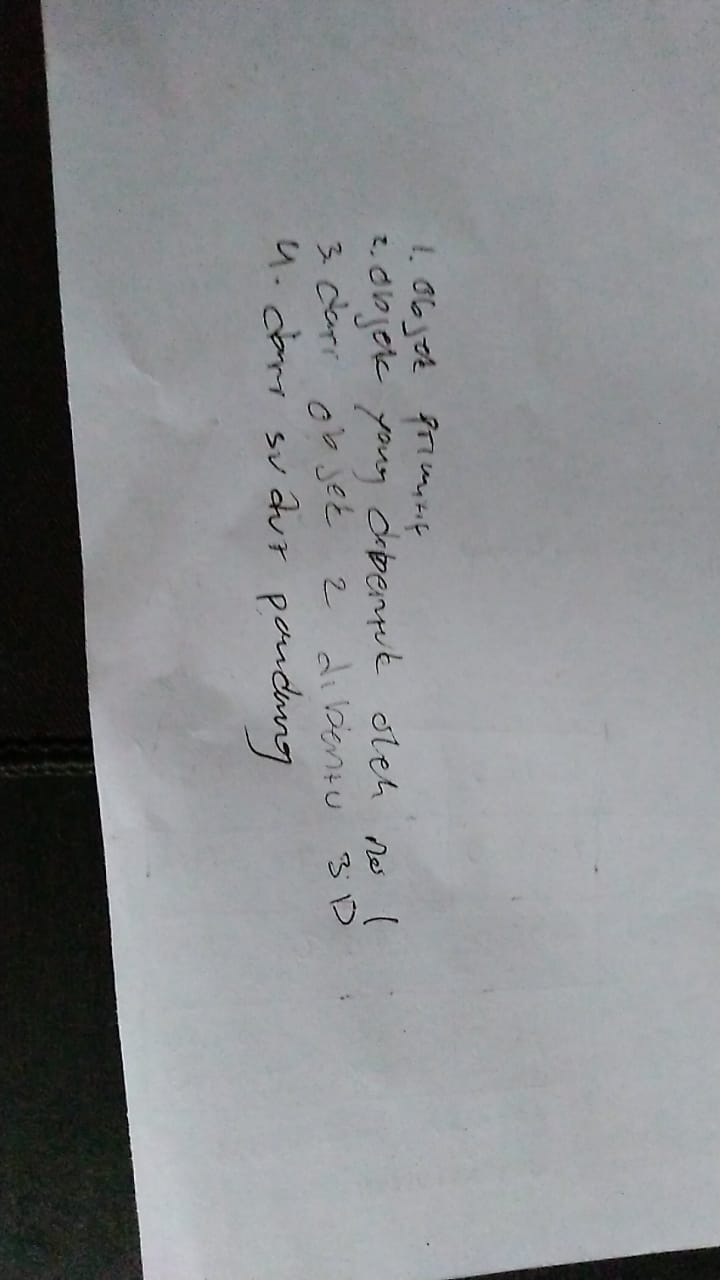 1. Objek primitif
2. objek yang dibentuk oleh no 1
3. dari objek 2 dibentu 3D
4. dari sudut pandang